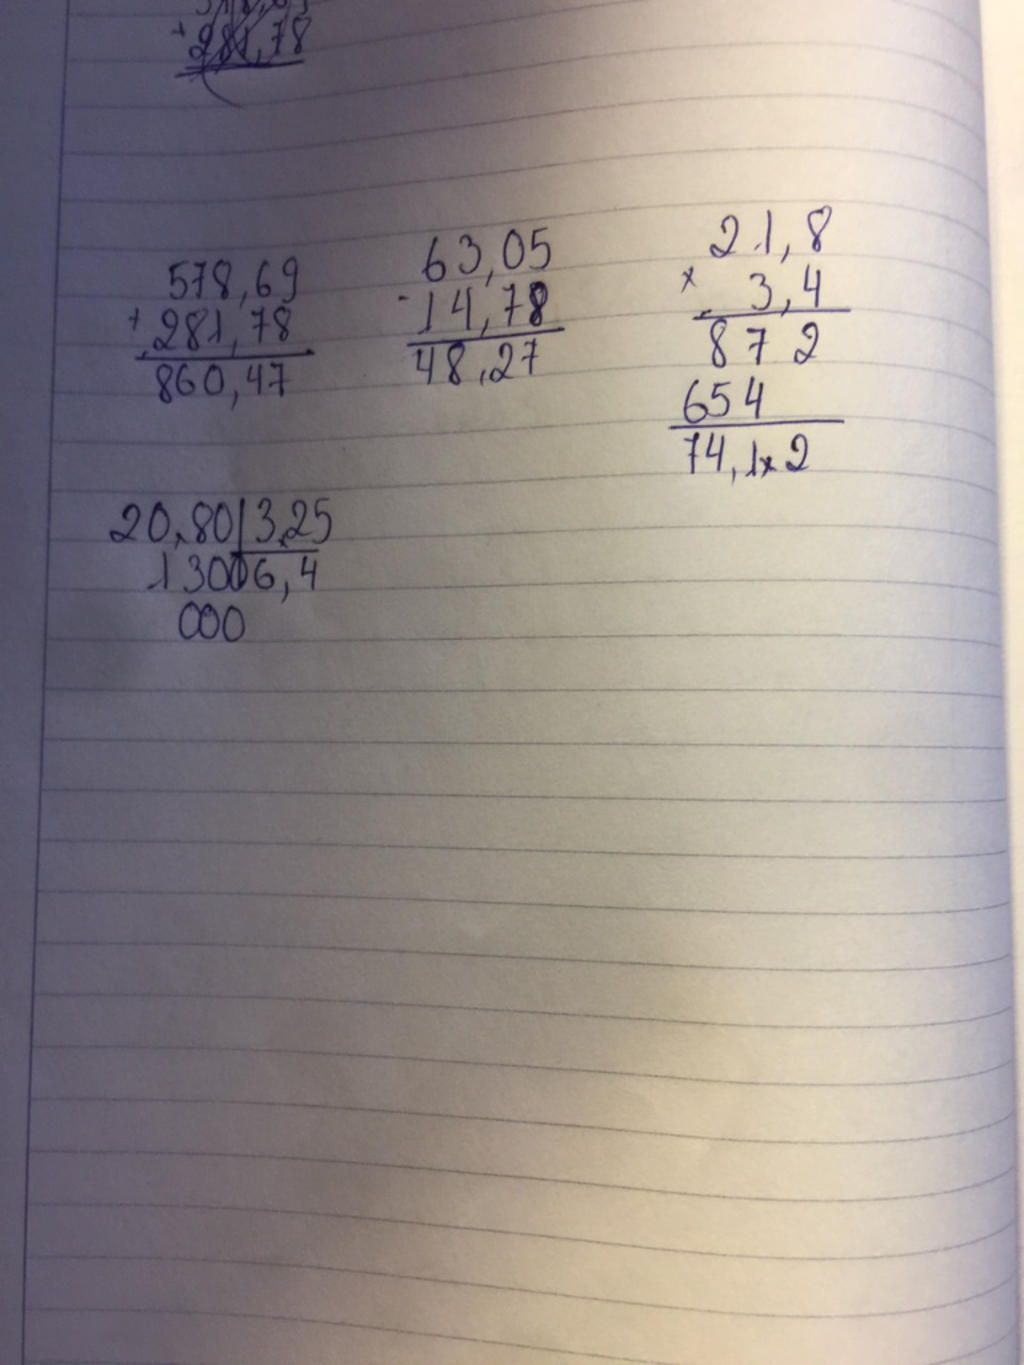 + 281,78
578,69
+ 281,78
860,47
63,05
- 14,78
48,27
21,8
x 3,4
872
654
74,1x2
20,80 3,25
1300 6,4
000